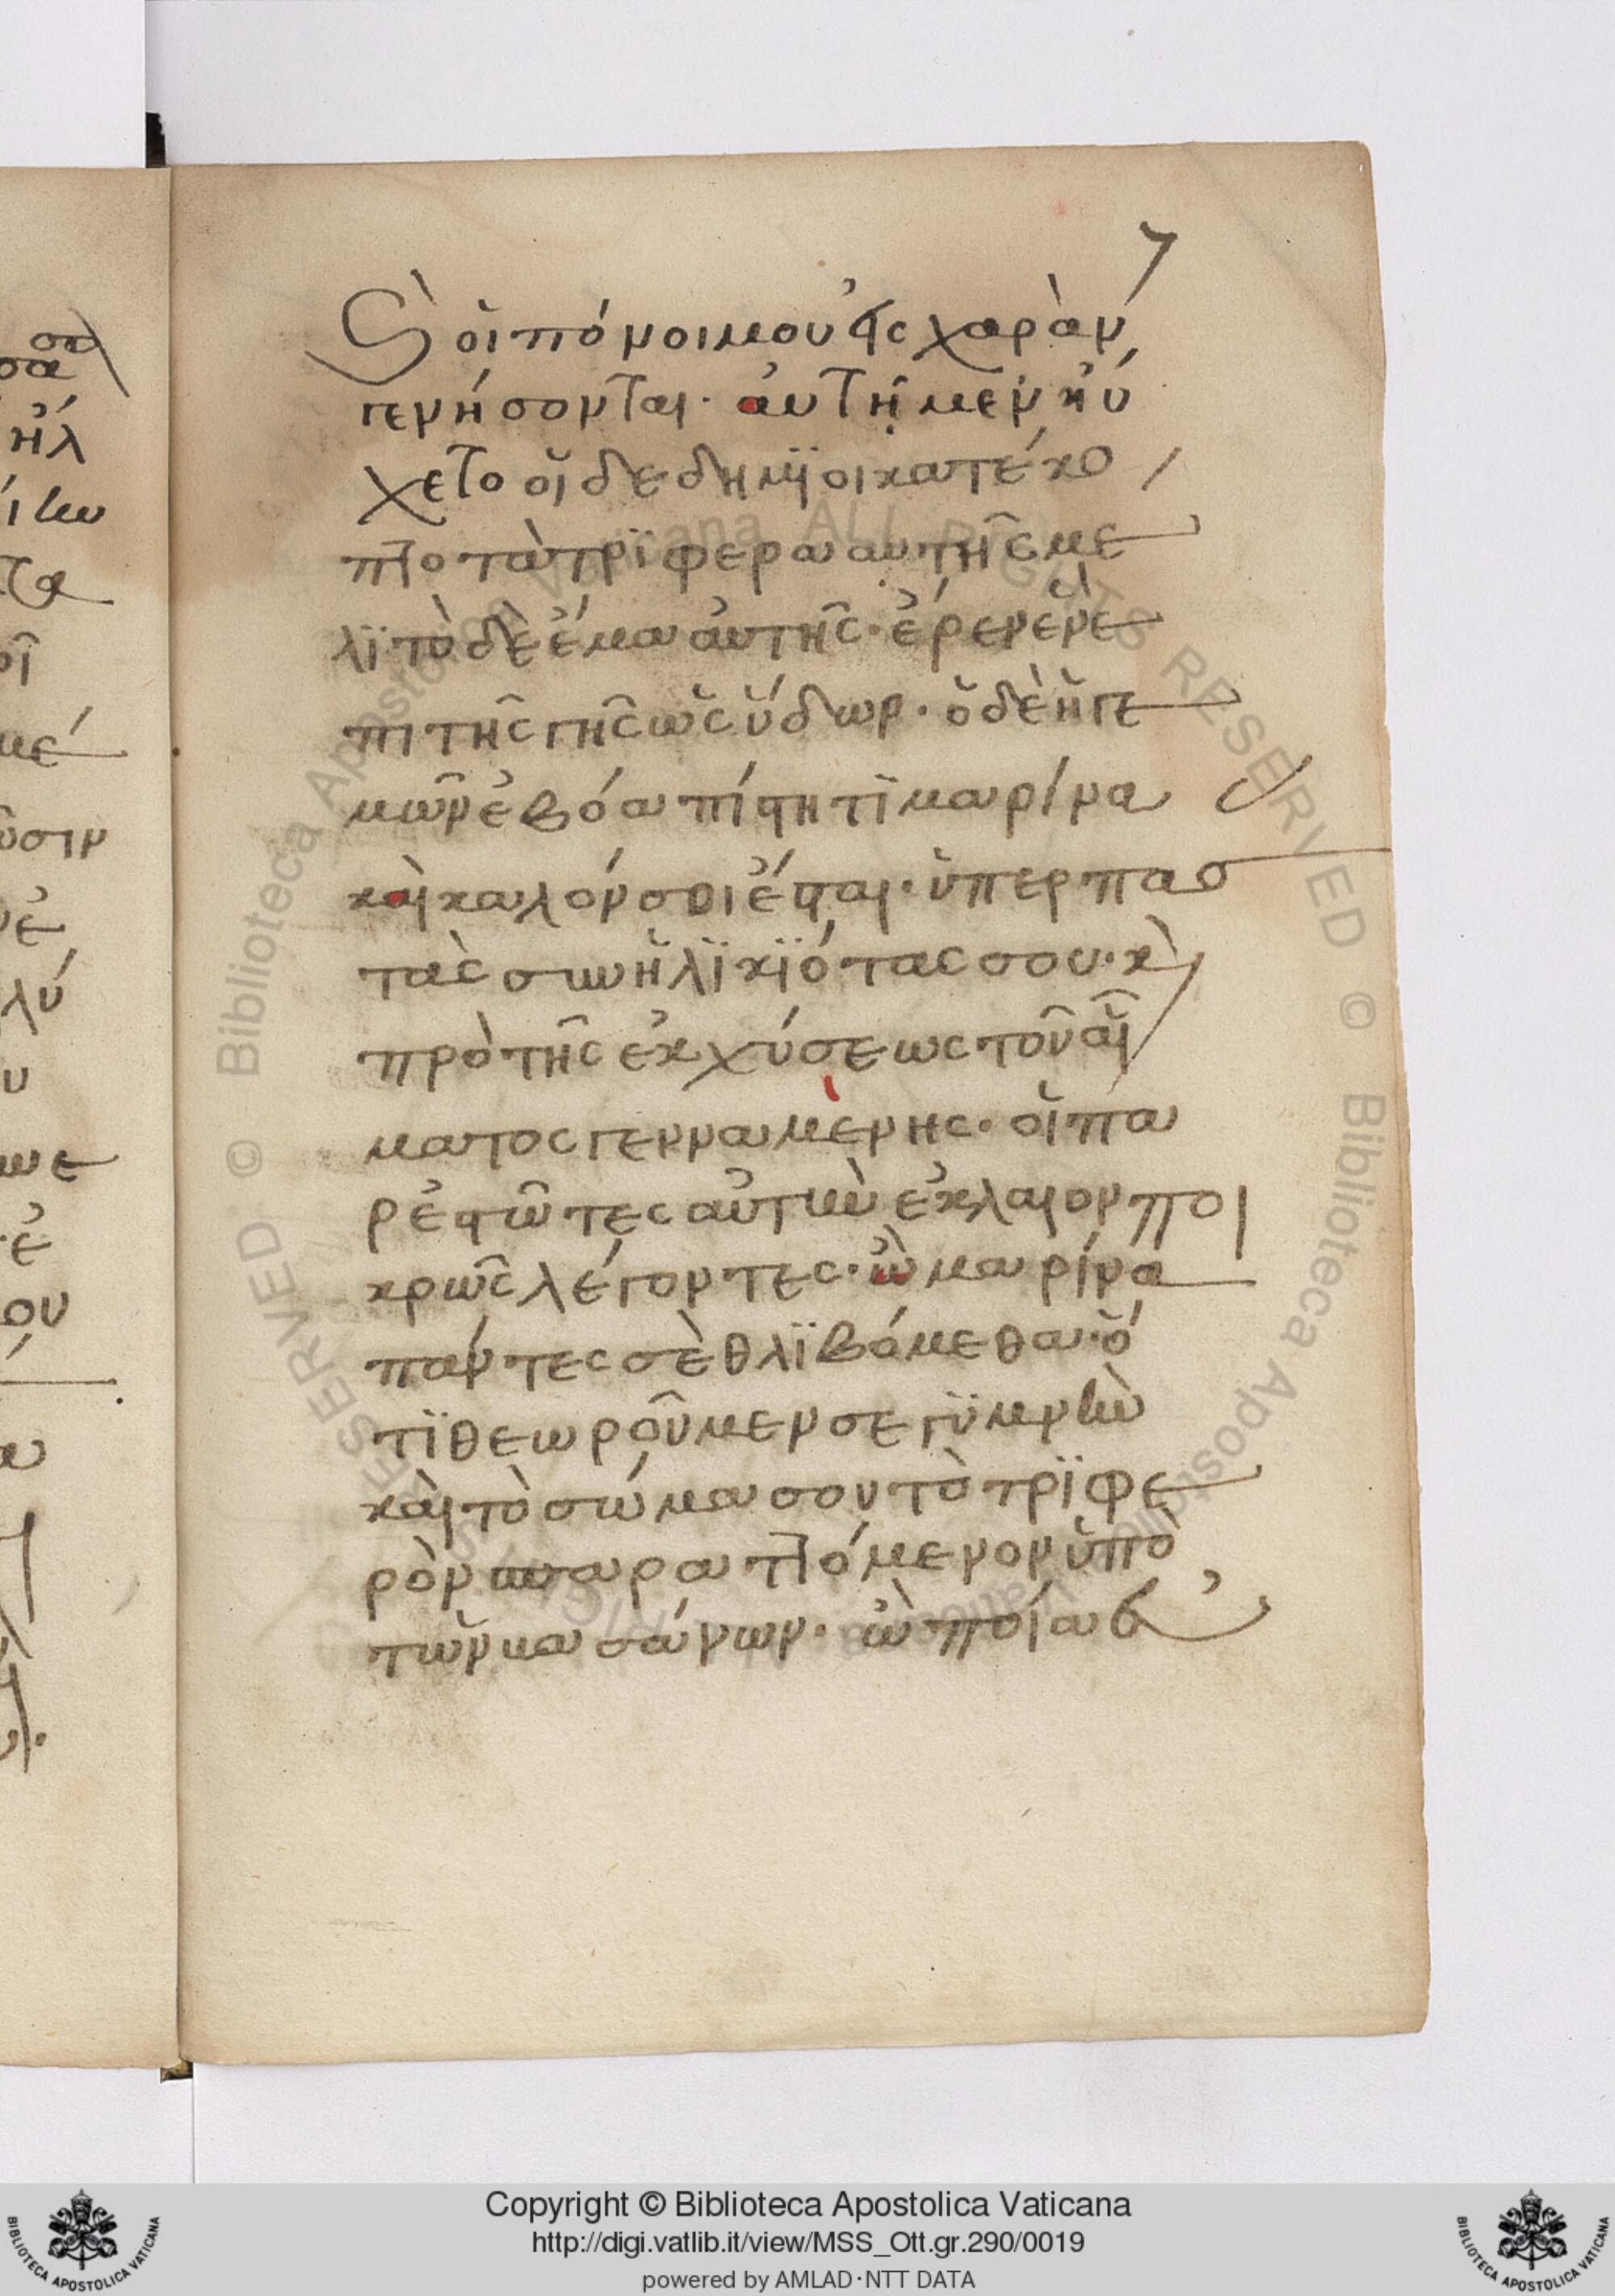 7
ϗ̀ οἱ πόνοι μου εἰς χαρὰν
γενήσονται· ἀυτὴ μεν ηὔ
χετο οἱ δε δήμϊοι κατέκο
πτο τὰ τρϊφερα αυτῆς με
λϊ τὸ δὲ ἔμα ἀυτῆς· ἔρενενε
πι τῆς γῆς ὡς ὕδωρ· ὁ δὲ ἡγε
μῶν ἐβόα πίστητϊ μαρίνα
και καλόν σοι ἔσται· ὑπερ πασ
τὰς συνηλϊκϊότας σου· ϗ̀
πρὸ τῆς εκχύσεως τοῦ αἵ
ματος γενναμένης· οἱ πα
ρεστῶτες αὐτὴν ἐκλαιον πι
κρῶς λέγοντες· ὦ μαρίνα
πάντες σὲ θλϊβόμεθα· ὅ
τϊ θεωροῦμεν σε γϋμνὴν
και τὸ σώμα σου τὸ τρϊφε
ρὸν παραπτόμενον ὑπὸ
τῶν μασάνων· ὢ ποία εὐ
οσα
ηλ
σιν
λύ
υ
ου
Copyright © Biblioteca Apostolica Vaticana
http://digi.vatlib.it/view/MSS_Ott.gr.290/0019
powered by AMLAD·NTT DATA
BIBLIOTECA APOSTOLICA VATICANA
BIBLIOTECA APOSTOLICA VATICANA
© Biblioteca Apostolica Vaticana ALL RIGHTS RESERVED
© Biblioteca Apostolica Vaticana ALL RIGHTS RESERVED